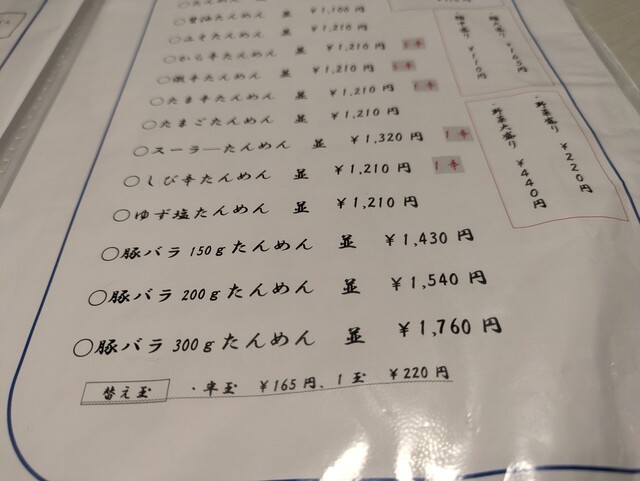 ○醤油たんめん 並 ￥1,166 円
○みそたんめん 並 ￥1,210 円
○から辛たんめん 並 ￥1,210 円 1辛
○激辛たんめん 並 ￥1,210 円
○たま辛たんめん 並 ￥1,210 円 1辛
○たまごたんめん 並 ￥1,210 円
○スーラーたんめん 並 ￥1,320 円 1辛
○しび辛たんめん 並 ￥1,210 円 1辛
○ゆず塩たんめん 並 ￥1,210 円
○豚バラ 150gたんめん 並 ￥1,430 円
○豚バラ 200gたんめん 並 ￥1,540 円
○豚バラ 300gたんめん 並 ￥1,760 円
替え玉 ・半玉 ￥165円、1玉 ￥220円
￥165円
￥110円
・野菜盛り ￥220円
・野菜大盛り ￥440円